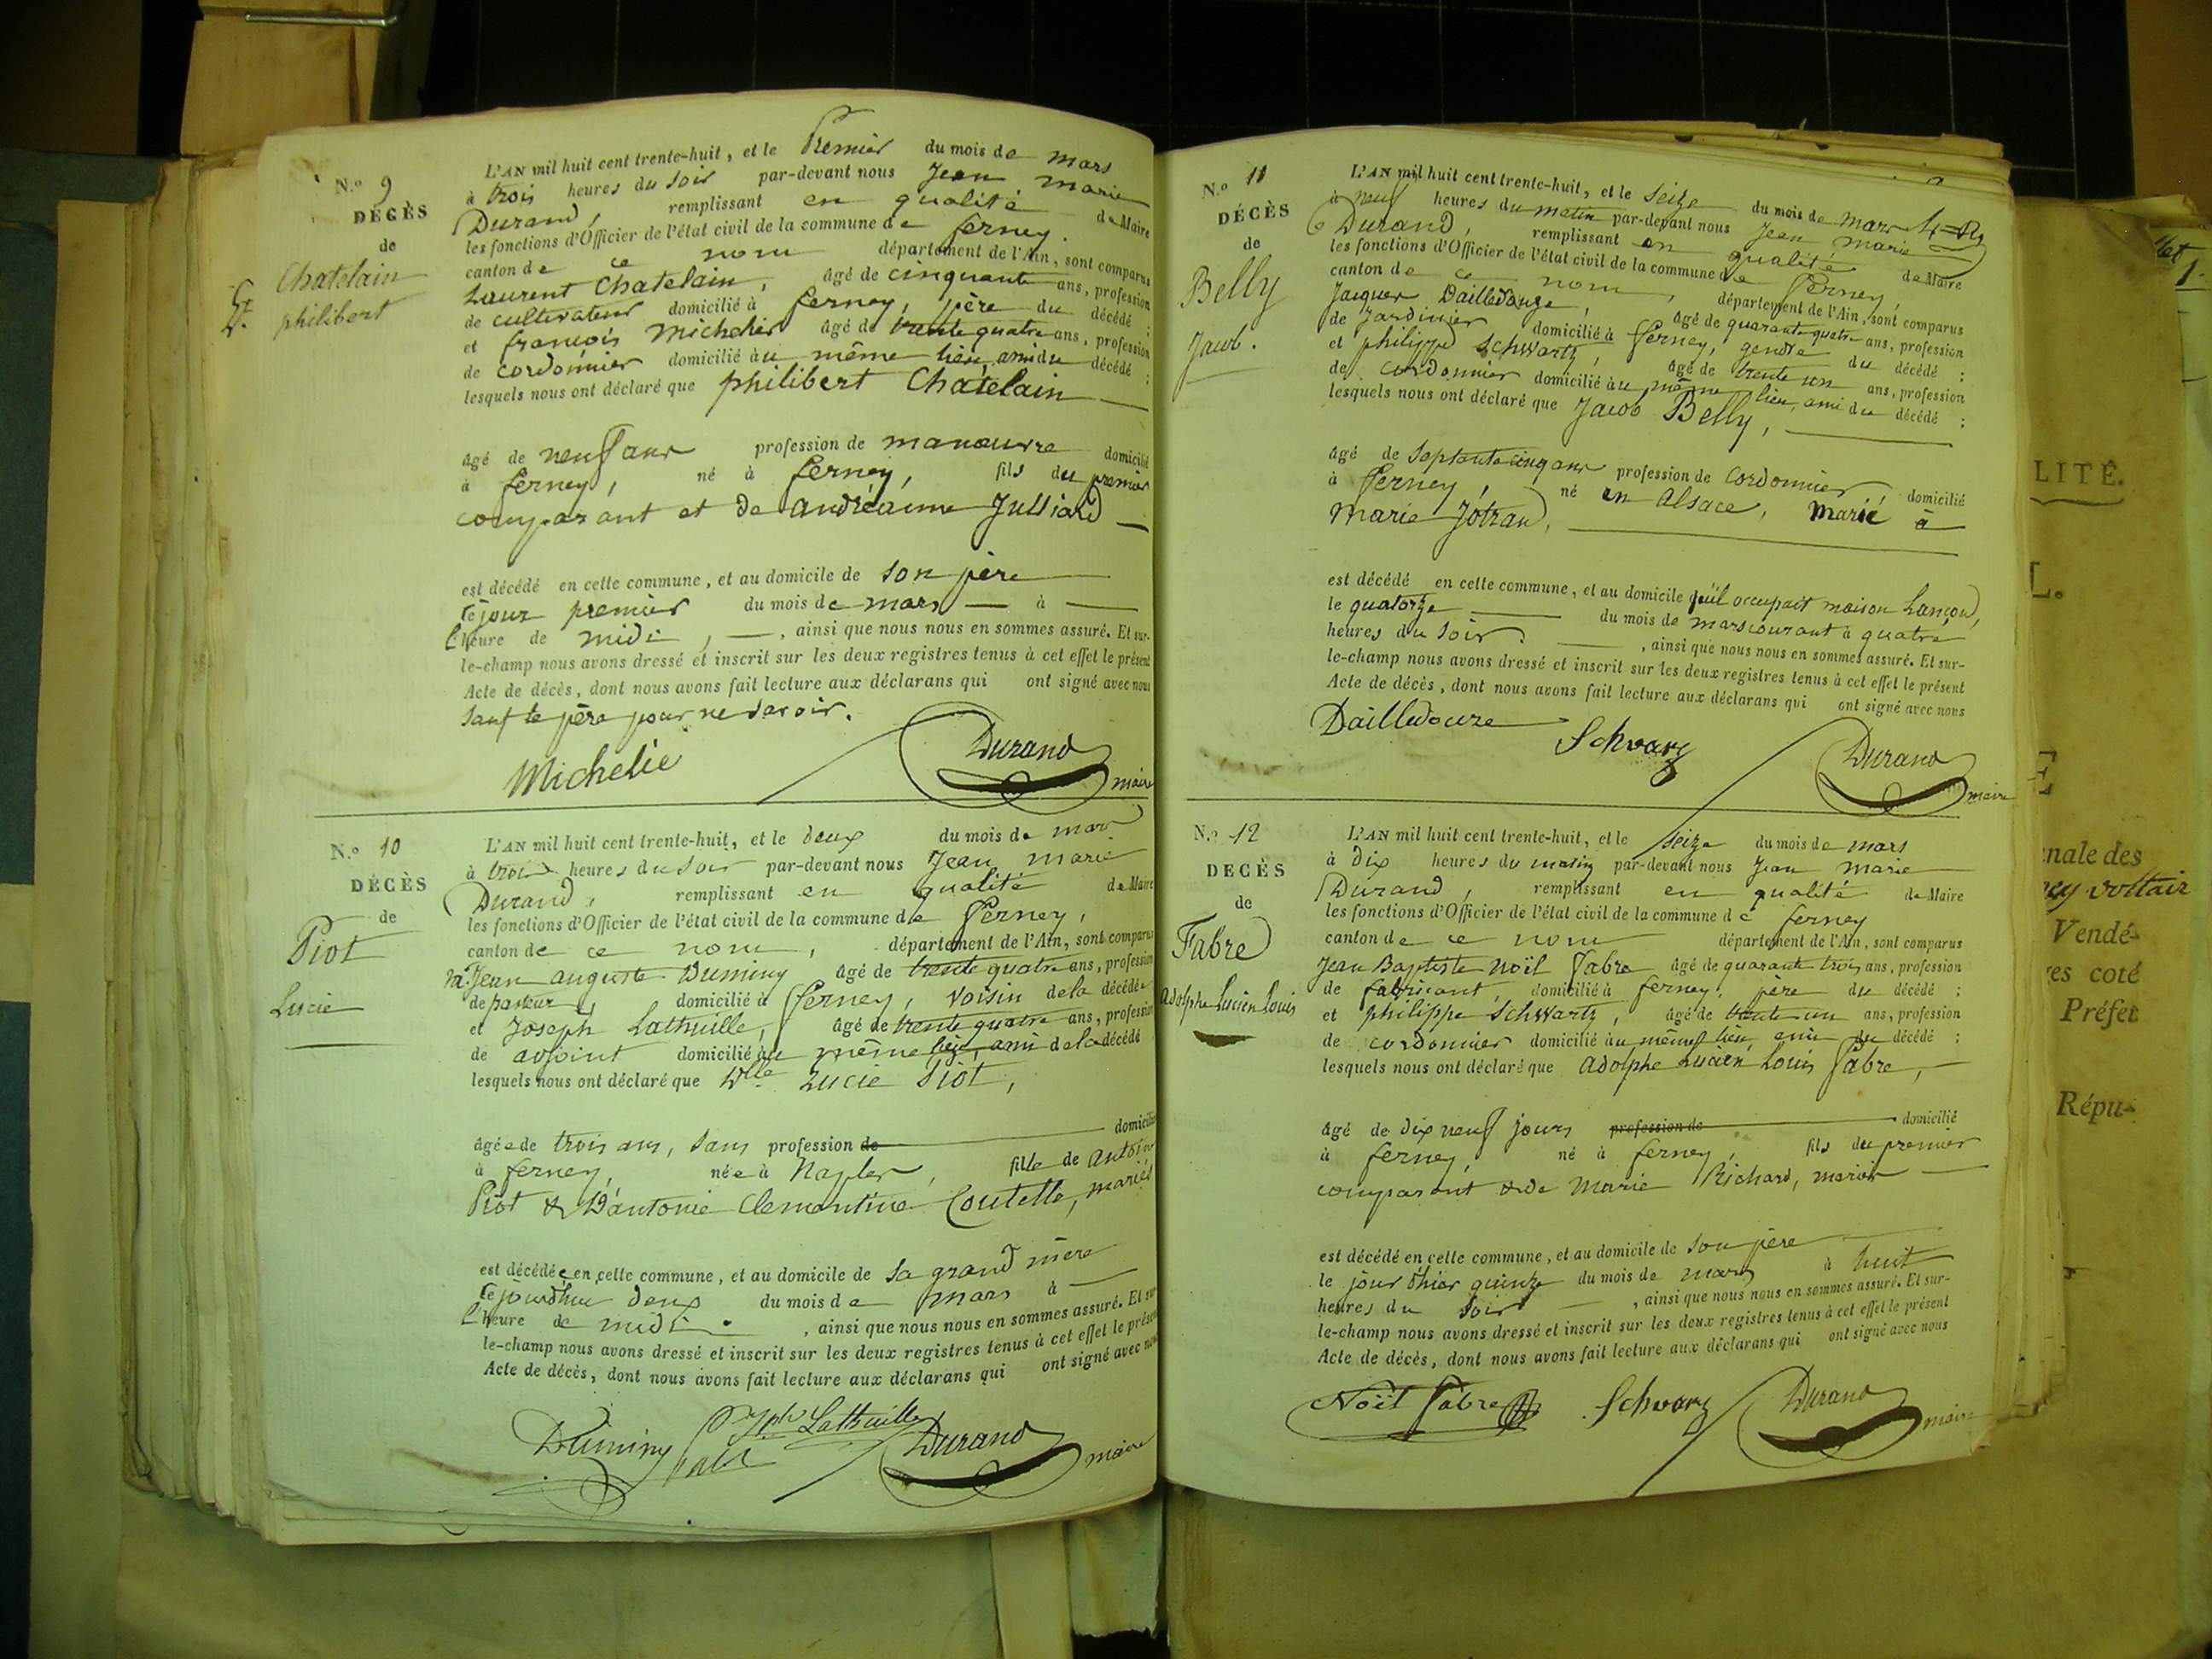 N.º 9
DÉCÈS
de
Chatelain
philibert
L'AN mil huit cent trente-huit, et le Premier du mois de mars
à trois heures du soir par-devant nous Jean marie
Durand, remplissant en qualité de Maire
les fonctions d'Officier de l'état civil de la commune de ferney.
canton de ce nom département de l'Ain, sont comparus
Laurent Chatelain, âgé de cinquante ans, profession
de cultivateur domicilié à ferney, père du décédé ;
et françois Michelier âgé de trente quatre ans, profession
de cordonnier domicilié au même lieu, ami du décédé ;
lesquels nous ont déclaré que philibert Chatelain
âgé de neuf ans profession de manœuvre domicilié
à ferney, né à ferney, fils du premier
comparant et de andréanne Julliard
est décédé en cette commune, et au domicile de son père
ce jour premier du mois de mars à
l'heure de midi, ainsi que nous nous en sommes assuré. Et sur-
le-champ nous avons dressé et inscrit sur les deux registres tenus à cet effet le présent
Acte de décès, dont nous avons fait lecture aux déclarans qui ont signé avec nous
sauf le père pour ne savoir.
Michelie Durand maire
N.º 10
DÉCÈS
de
Piot
Lucie
L'AN mil huit cent trente-huit, et le deux du mois de mars
à trois heures du soir par-devant nous Jean marie
Durand, remplissant en qualité de Maire
les fonctions d'Officier de l'état civil de la commune de ferney,
canton de ce nom, département de l'Ain, sont comparus
M. Jean auguste Duminy âgé de trente quatre ans, profession
de pasteur, domicilié à ferney, voisin de la décédée
et Joseph Lathuille, âgé de trente quatre ans, profession
de adjoint domicilié au même lieu, ami de la décédé
lesquels nous ont déclaré que Dlle Lucie Piot,
âgée de trois ans, sans profession de domicilié
à ferney, née à Naples, fille de Antoine
Piot & D'antonie Clementine Coutelle, mariés
est décédée en cette commune, et au domicile de sa grand mère
ce jourdhui deux du mois de mars à
l'heure de midi, ainsi que nous nous en sommes assuré. Et sur-
le-champ nous avons dressé et inscrit sur les deux registres tenus à cet effet le présent
Acte de décès, dont nous avons fait lecture aux déclarans qui ont signé avec nous
Duminy Jph Lathuille Durand maire
N.º 11
DÉCÈS
de
Belly
Jacob.
L'AN mil huit cent trente-huit, et le seize du mois de mars
à neuf heures du matin par-devant nous Jean marie
Durand, remplissant en qualité de Maire
les fonctions d'Officier de l'état civil de la commune de ferney,
canton de ce nom, département de l'Ain, sont comparus
Jacques Dailledouze, âgé de quarante quatre ans, profession
de Jardinier domicilié à ferney, gendre du décédé ;
et philippe Schwartz, âgé de trente un ans, profession
de cordonnier domicilié au même lieu, ami du décédé ;
lesquels nous ont déclaré que Jacob Belly,
âgé de septante cinq ans profession de cordonnier domicilié
à ferney, né en alsace, marié à
marie Jotrand,
est décédé en cette commune, et au domicile qu'il occupait maison Lançon,
le quatorze du mois de mars courant à quatre
heures du soir, ainsi que nous nous en sommes assuré. Et sur-
le-champ nous avons dressé et inscrit sur les deux registres tenus à cet effet le présent
Acte de décès, dont nous avons fait lecture aux déclarans qui ont signé avec nous
Dailledouze Schwarz Durand maire
N.º 12
DECÈS
de
Fabre
Adolphe Lucien Louis
L'AN mil huit cent trente-huit, et le seize du mois de mars
à dix heures du matin par-devant nous Jean marie
Durand, remplissant en qualité de Maire
les fonctions d'Officier de l'état civil de la commune de ferney
canton de ce nom département de l'Ain, sont comparus
Jean Baptiste Noël Fabre âgé de quarante trois ans, profession
de fabricant, domicilié à ferney, père du décédé ;
et philippe Schwartz, âgé de trente un ans, profession
de cordonnier domicilié au même lieu, ami du décédé ;
lesquels nous ont déclaré que adolphe Lucien Louis Fabre,
âgé de dix neuf jours profession de domicilié
à ferney, né à ferney, fils du premier
comparant & de Marie Richard, mariés
est décédé en cette commune, et au domicile de son père
le jour d'hier quinze du mois de mars à huit
heures du soir, ainsi que nous nous en sommes assuré. Et sur-
le-champ nous avons dressé et inscrit sur les deux registres tenus à cet effet le présent
Acte de décès, dont nous avons fait lecture aux déclarans qui ont signé avec nous
Noël Fabre Schwarz Durand maire
LITÉ.
L.
E
nale des
ney voltair
Vendé-
res coté
Préfet
Répu-